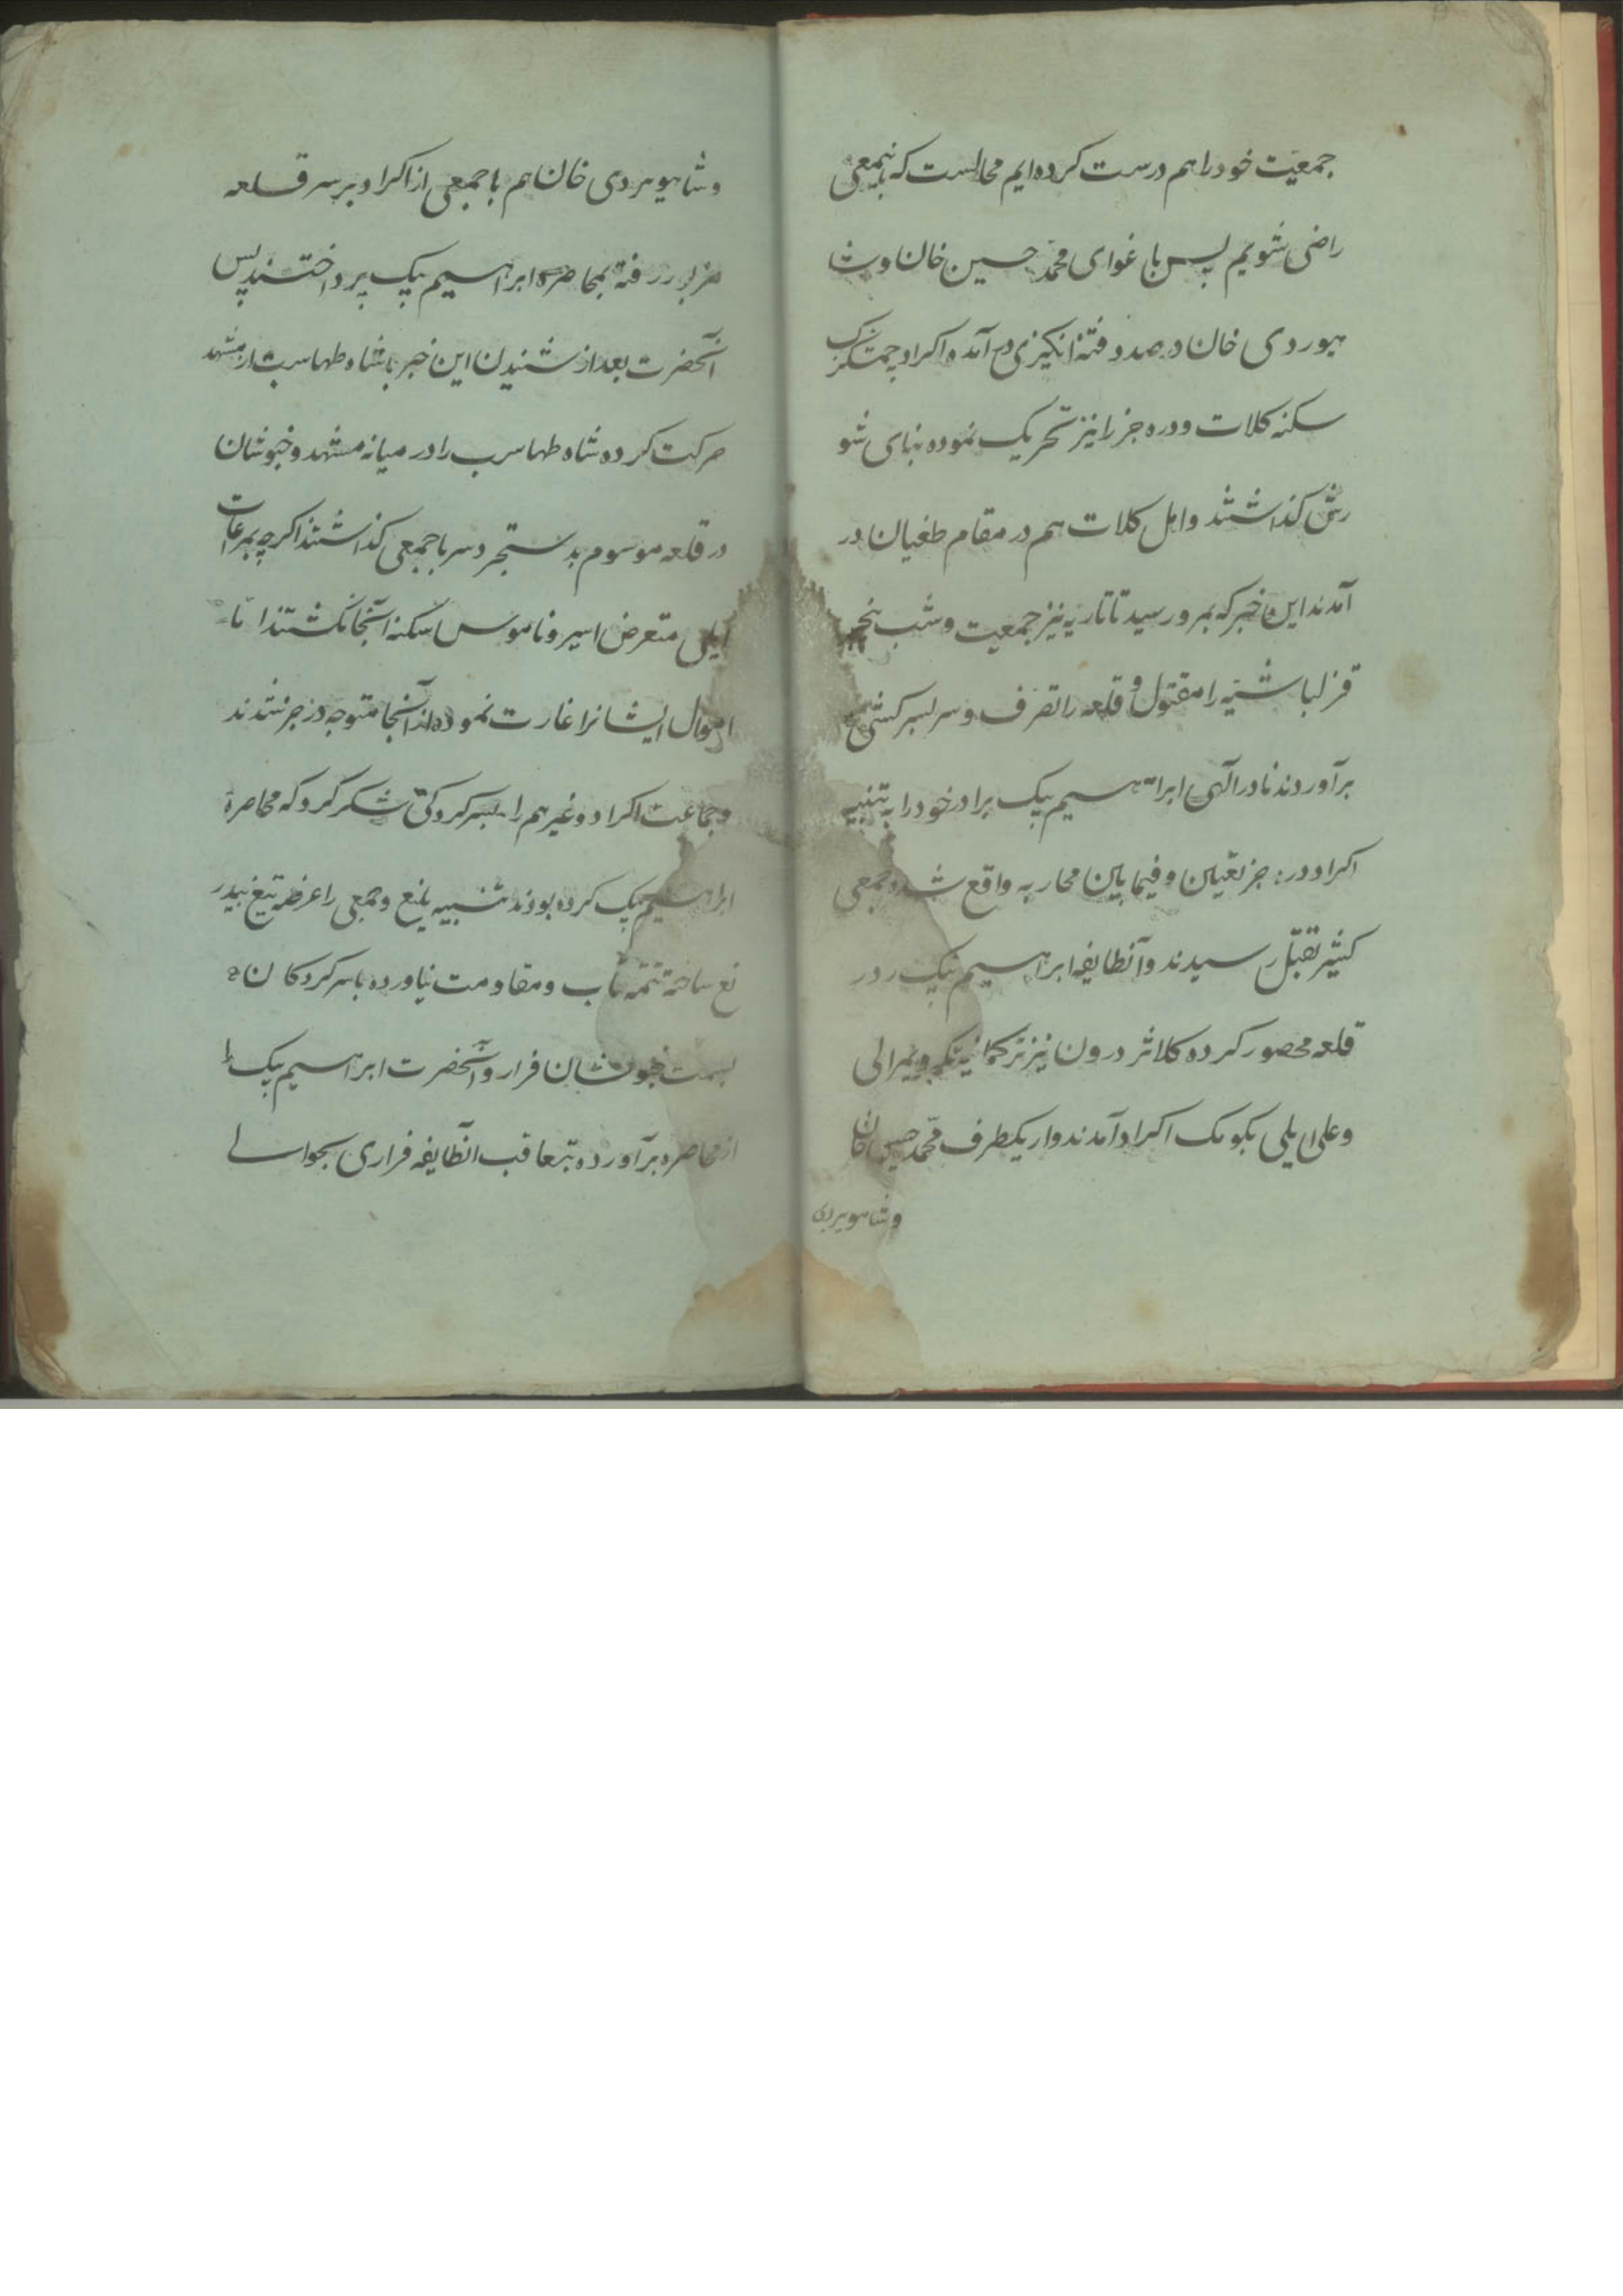 جمعیت خود را هم درست کرده ایم محالست که باینمعنی
راضی شویم پس باغوای محمد حسین خان و شا
هویردی خان در صدد فتنه انگیزی در آمده و اکراد چمشکزک
سکنه کلات و دره جز را نیز تحریک نموده بنای شو
رش گذاشتند و اهل کلات هم در مقام طغیان در
آمدند این خبر که بمرو رسید تاتاریه نیز جمعیت و شب
قزلباشیه را مقتول و قلعه را تصرف و سر بسرکشی
برآوردند نادر الهی ابراهیم بیک برادر خود را به تنبیه
اکراد دره جز تعیین و فیمابین محاربه واقع شده جمعی
کثیر بقتل رسیدند و آنطایفه ابراهیم بیک را در
قلعه محصور کرده کلانتر درون نیز ترکمانیه یمرالی
و علی ایلی بکومک اکراد آمدند و از یکطرف محمد حسین خان
و شاهویردی
و شاهویردی خان هم با جمعی از اکراد بر سر قلعه
مزبور رفته بمحاصره ابراهیم بیک پرداختند پس
آنحضرت بعد از شنیدن این خبر با شاه طهماسب از مشهد
حرکت کرده شاه طهماسب را در میانه مشهد و خبوشان
در قلعه موسوم به با جمعی گذاشتند اگرچه بمراعات
ایلی متعرض اسیر و ناموس سکنه آنجا نگشتند اما
اموال ایشانرا غارت نموده از آنجا متوجه دره جز شدند
و جماعت اکراد و غیرهم را بسرکردگی شکر کرد که محاصره
ابراهیم بیک کرده بودند تنبیه بلیغ و جمعی را عرضه تیغ بیدر
یغ ساخته تتمه تاب و مقاومت نیاورده با سرکردگان
بسمت خبوشان فرار و آنحضرت ابراهیم بیک را
از محاصره برآورده بتعاقب آنطایفه فراری بحوالی